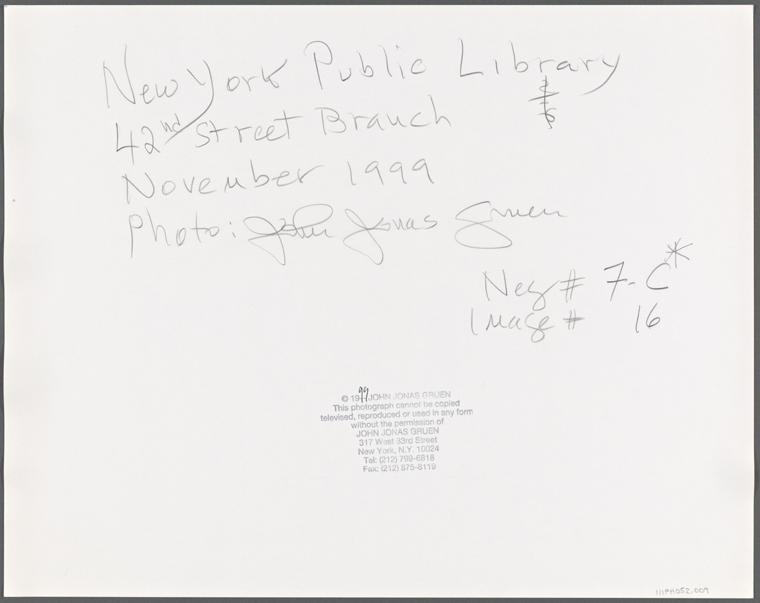 New York Public Library
42nd Street Branch
November 1999
Photo: John Jonas Gruen
Neg # 7-C*
Image # 16
© 1999 JOHN JONAS GRUEN
This photograph cannot be copied
televised, reproduced or used in any form
without the permission of
JOHN JONAS GRUEN
317 West 83rd Street
New York, N.Y. 10024
Tel: (212) 799-6818
Fax: (212) 875-8119
111PH052.009